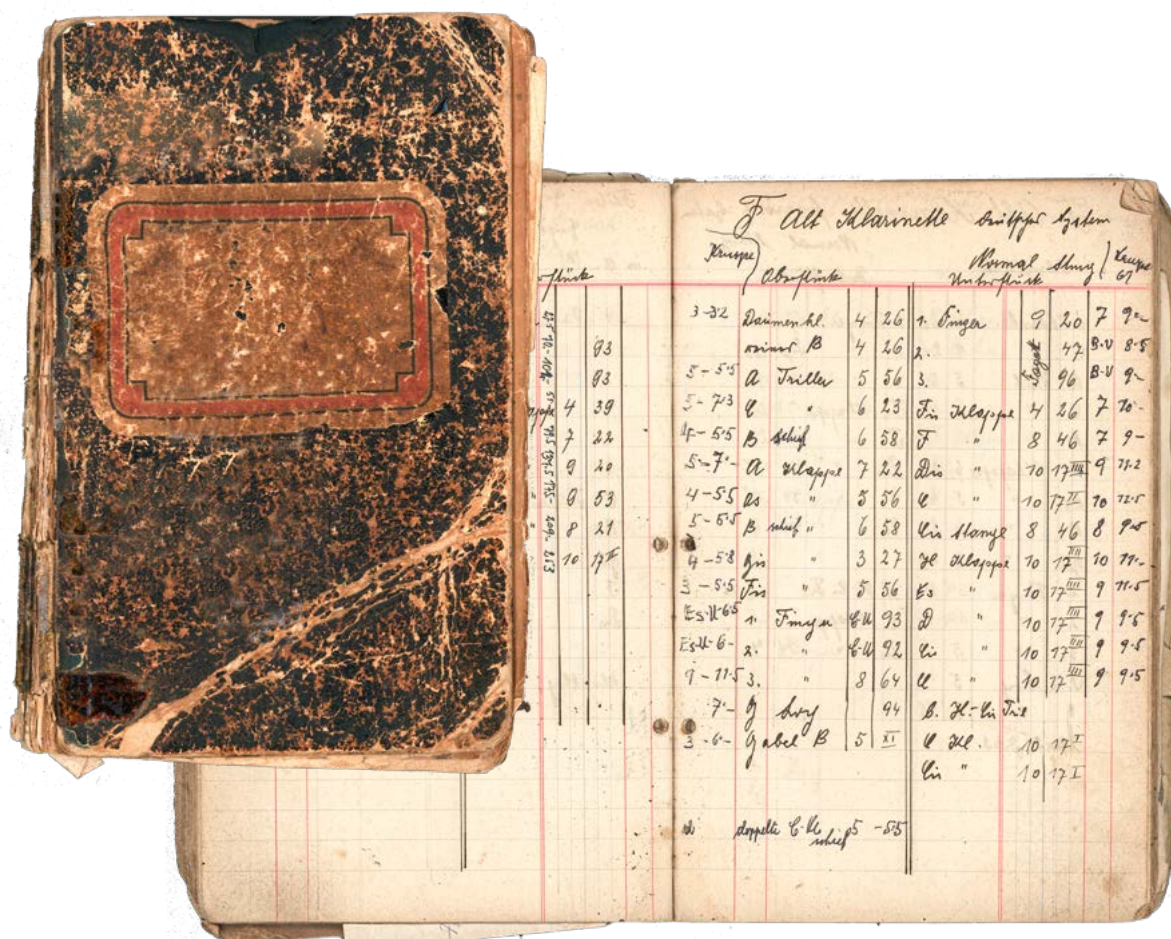 F Alt Klarinette deutsches System
Kruspe Oberstück Normal Unterstück Krupe
rstück
3-32 Daumenkl. 4 26 1. Finger 9 20 7 9-
93 reines B 4 26 2. 47 B-V 8·5
93 5-5·5 A Triller 5 56 3. 96 B-V 9-
4 39 5-7·3 C " 6 23 Fis Klappe 4 26 7 10-
7 22 4-5·5 B schief 6 58 F " 8 46 7 9-
9 20 5-7- A Klappe 7 22 Dis " 10 17 IIII 9 11·2
9 53 4-5·5 As " 5 56 C " 10 17 II 10 12·5
8 21 5-5·5 B schief " 6 58 Cis Stange 8 46 8 9·5
10 17 II 4-5·8 Gis " 3 27 H Klappe 10 17 IIII 10 11-
3-5·5 Fis " 5 56 Es " 10 17 IIII 9 11·5
Es-U-6·5 1. Finger C-U 93 D " 10 17 IIII 9 9·5
Es-U-6- 2. " C-U 92 Cis " 10 17 IIII 9 9·5
9-11·5 3. " 8 64 C " 10 17 IIII 9 9·5
7- G 94 B. H-Cis
3-6- Gabel B 5 XI C Kl. 10 17 I
Cis " 10 17 I
doppelte C-Kl. 5 -5·5
schief